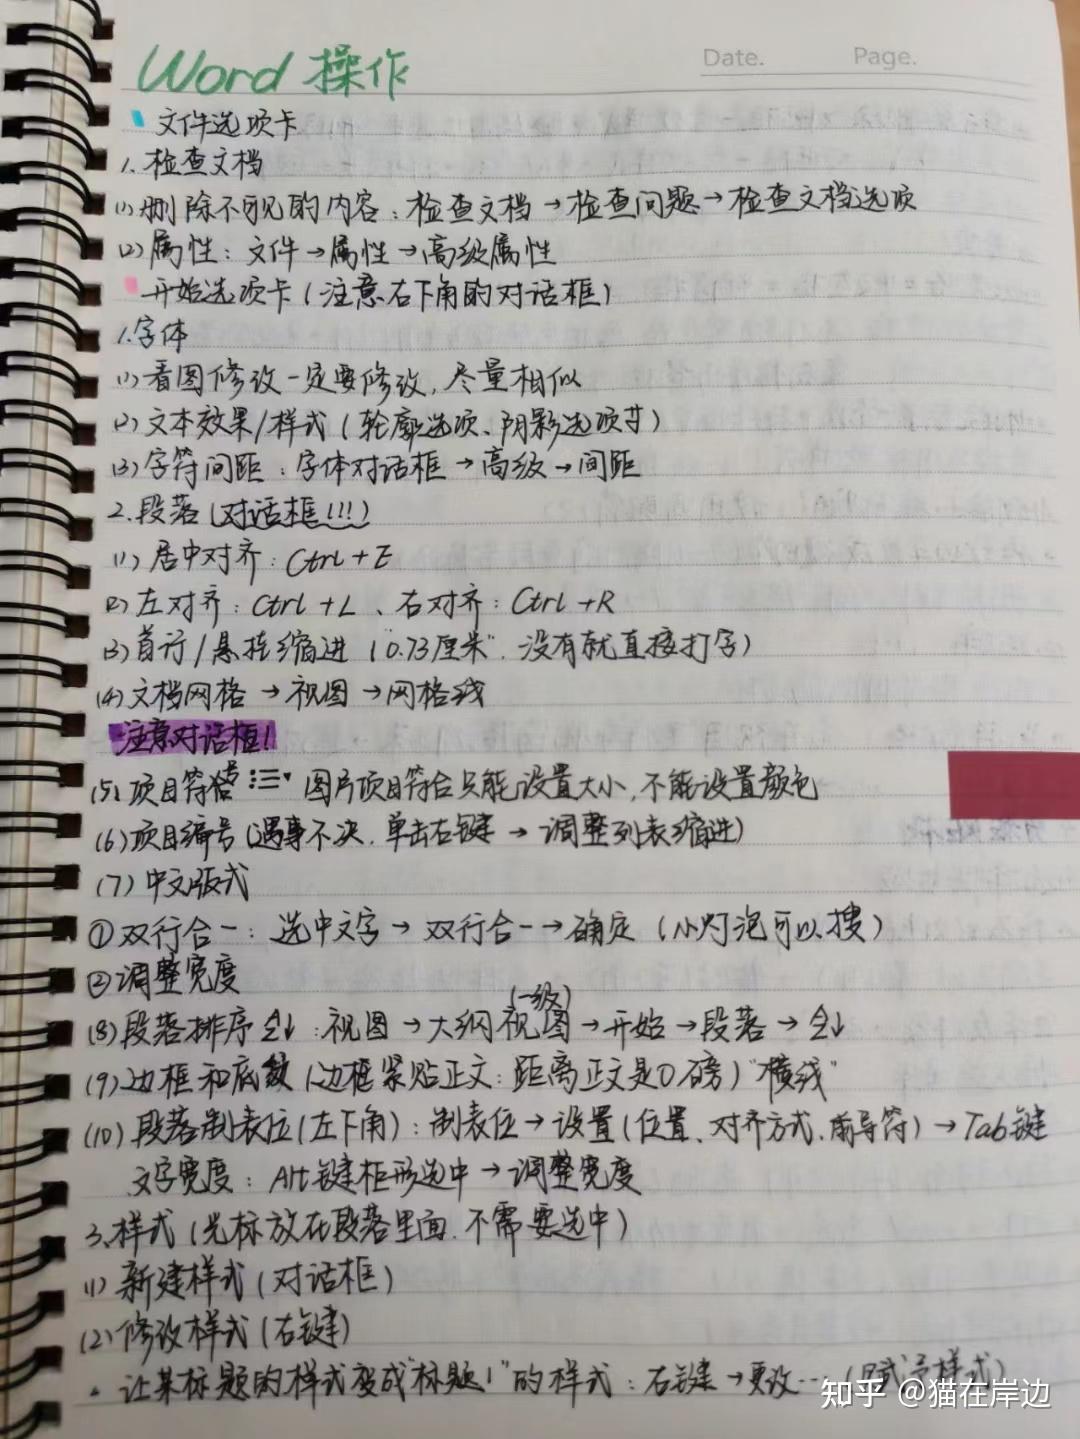 Date. Page.
Word 操作
文件选项卡
1. 检查文档
(1) 删除不可见的内容：检查文档→检查问题→检查文档选项
(2) 属性：文件→属性→高级属性
开始选项卡（注意右下角的对话框）
1. 字体
(1) 看图修改一定要修改，尽量相似
(2) 文本效果/样式（轮廓选项、阴影选项等）
(3) 字符间距：字体对话框→高级→间距
2. 段落（对话框!!!）
(1) 居中对齐：Ctrl+E
(2) 左对齐：Ctrl+L、右对齐：Ctrl+R
(3) 首行/悬挂缩进（“0.73厘米”，没有就直接打字）
(4) 文档网格→视图→网格线
注意对话框!
(5) 项目符号 图片项目符合只能设置大小，不能设置颜色
(6) 项目编号（遇事不决，单击右键→调整列表缩进）
(7) 中文版式
① 双行合一：选中文字→双行合一→确定（小灯泡可以搜）
② 调整宽度
(8) 段落排序：视图→大纲视图（一级）→开始→段落→
(9) 边框和底纹（边框紧贴正文：距离正文是0磅）“横线”
(10) 段落制表位（左下角）：制表位→设置（位置、对齐方式、前导符）→Tab键
文字宽度：Alt键框形选中→调整宽度
3. 样式（光标放在段落里面，不需要选中）
(1) 新建样式（对话框）
(2) 修改样式（右键）
• 让某标题的样式变成“标题1”的样式：右键→更改…（ 样式）
知乎 @猫在岸边